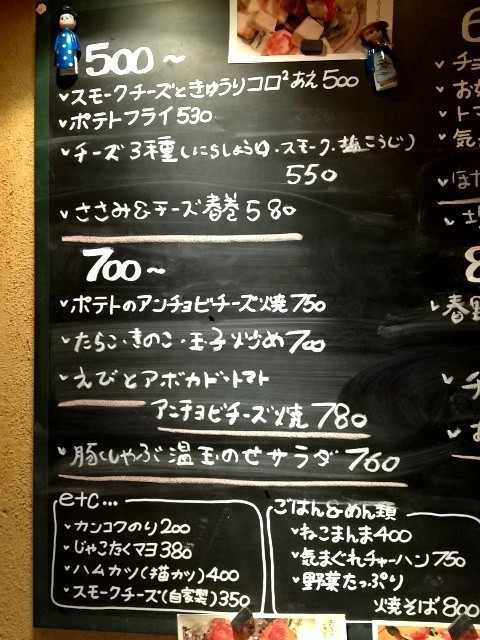 500～
スモークチーズときゅうりコロ²あえ 500
ポテトフライ 530
チーズ3種(にらしょうゆ・スモーク・塩こうじ)
550
ささみ&チーズ春巻 580
700～
ポテトのアンチョビチーズ焼 750
たらこ・きのこ・玉子炒め 700
えびとアボカド・トマト
アンチョビチーズ焼 780
豚しゃぶ温玉のせサラダ 760
etc...
カンコクのり 200
じゃこたくマヨ 380
ハムカツ(猫カツ) 400
スモークチーズ(自家製) 350
ごはん&めん類
ねこまんま 400
気まぐれチャーハン 750
野菜たっぷり
焼そば 800
チ
お
ト
気
8
春野
チ